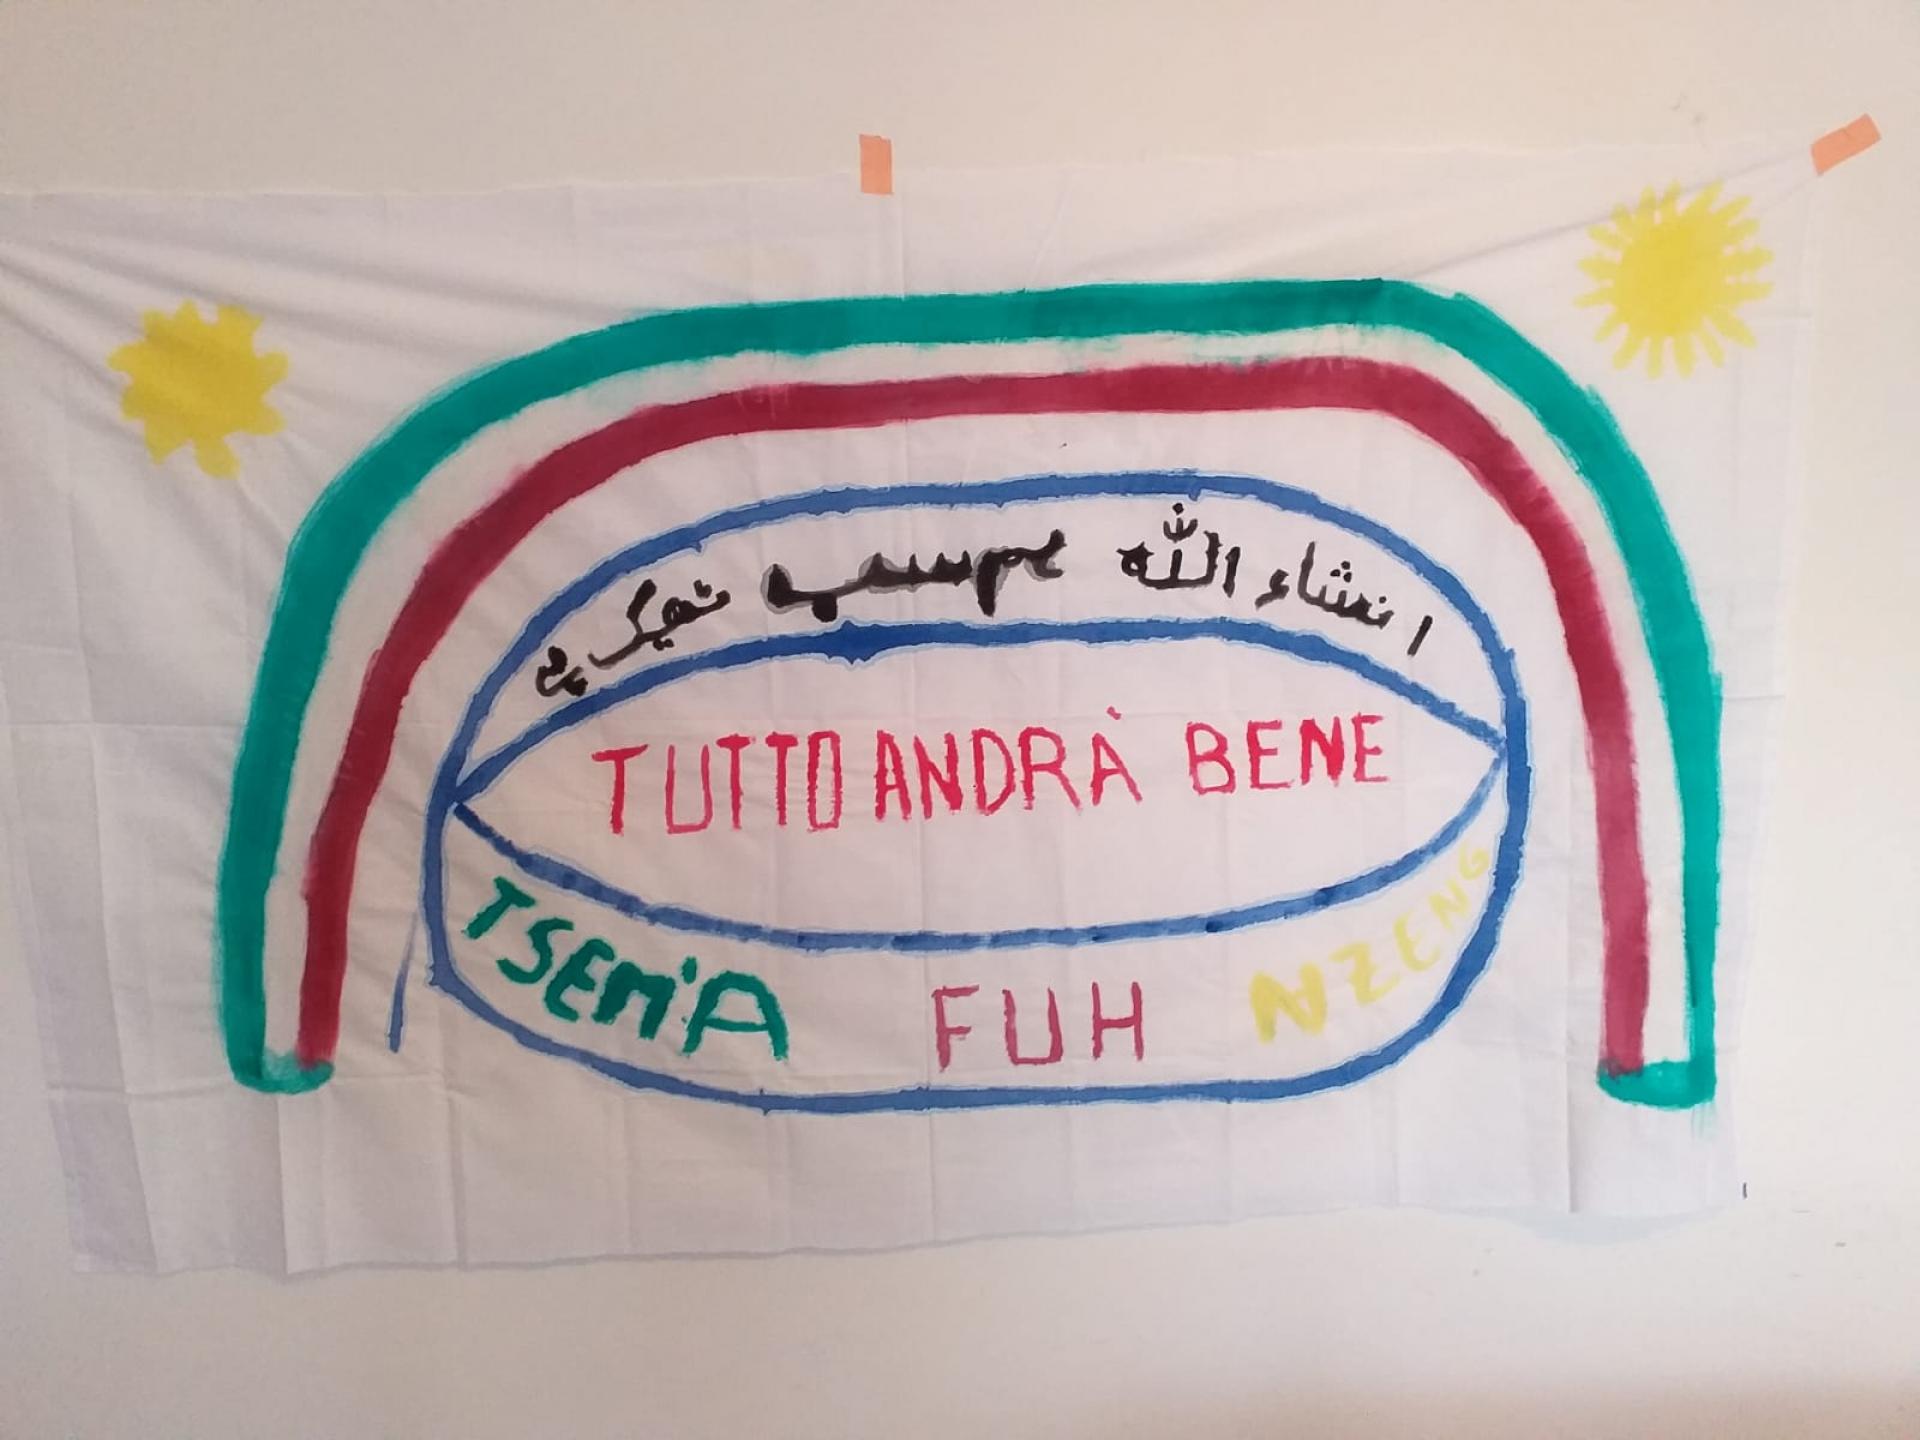 انشاء اللہ ہم سب ٹھیک ہے
TUTTO ANDRÀ BENE
TSEM'A FUH NZENG